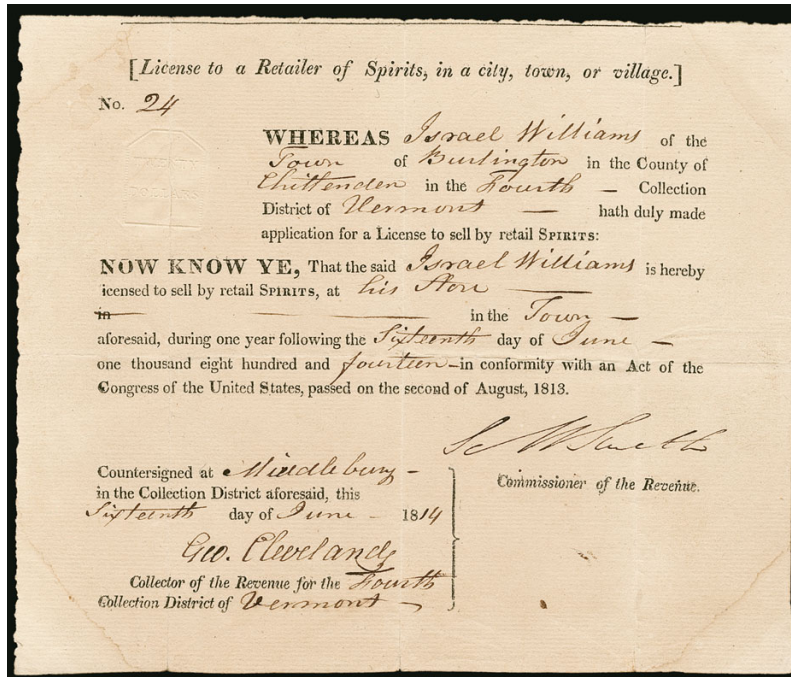 [License to a Retailer of Spirits, in a city, town, or village.]
No. 24
WHEREAS Israel Williams of the
Town of Burlington in the County of
Chittenden in the Fourth — Collection
District of Vermont — hath duly made
application for a License to sell by retail SPIRITS:
NOW KNOW YE, That the said Israel Williams is hereby
licensed to sell by retail SPIRITS, at his Store —
in — — in the Town —
aforesaid, during one year following the Sixteenth day of June —
one thousand eight hundred and fourteen — in conformity with an Act of the
Congress of the United States, passed on the second of August, 1813.
Commissioner of the Revenue.
Countersigned at Middlebury —
in the Collection District aforesaid, this
Sixteenth day of June — 1814
Geo. Cleveland
Collector of the Revenue for the Fourth
Collection District of Vermont —